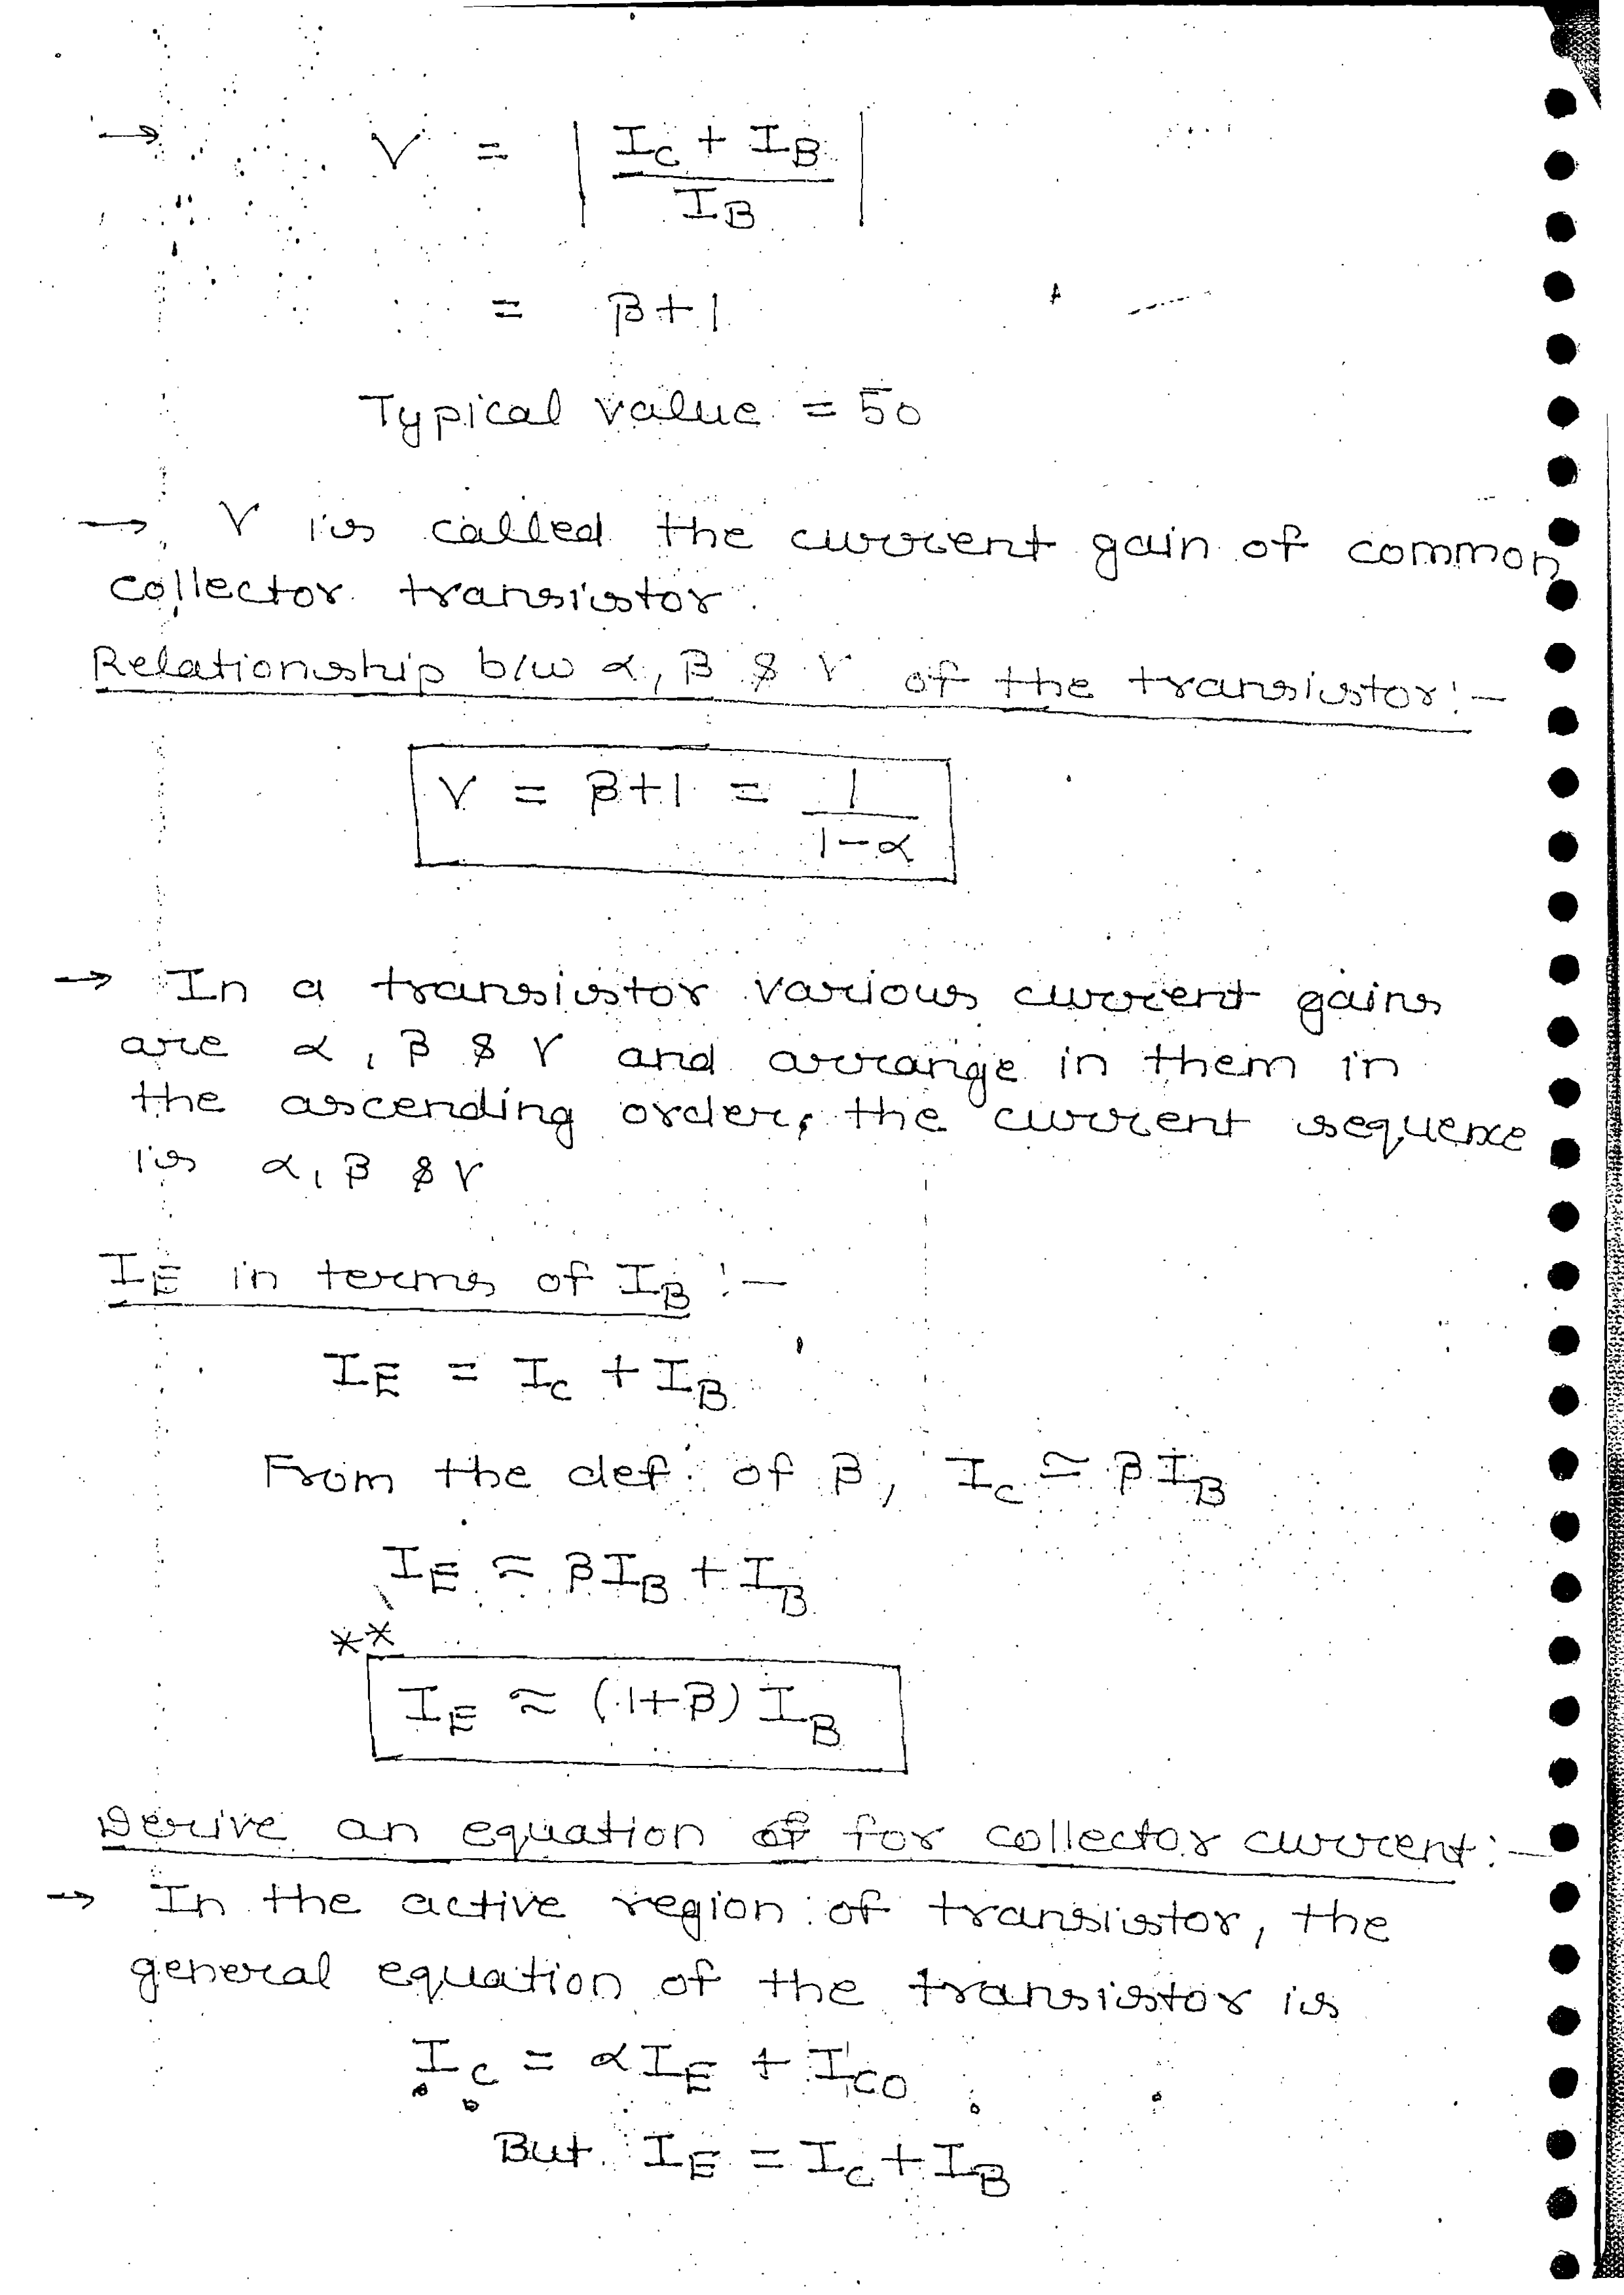 → γ = | (I_C + I_B) / I_B |
= β+1
Typical value = 50
→ γ is called the current gain of common
collector transistor.
Relationship b/w α, β & γ of the transistor:-
γ = β+1 = 1 / (1-α)
→ In a transistor various current gains
are α, β & γ and arrange in them in
the ascending order, the current sequence
is α, β & γ
I_E in terms of I_B :-
I_E = I_C + I_B
From the def. of β, I_C ≃ β I_B
I_E ≈ β I_B + I_B
**
I_E ≈ (1+β) I_B
Derive an equation of for collector current:-
→ In the active region of transistor, the
general equation of the transistor is
I_C = α I_E + I_CO
But I_E = I_C + I_B